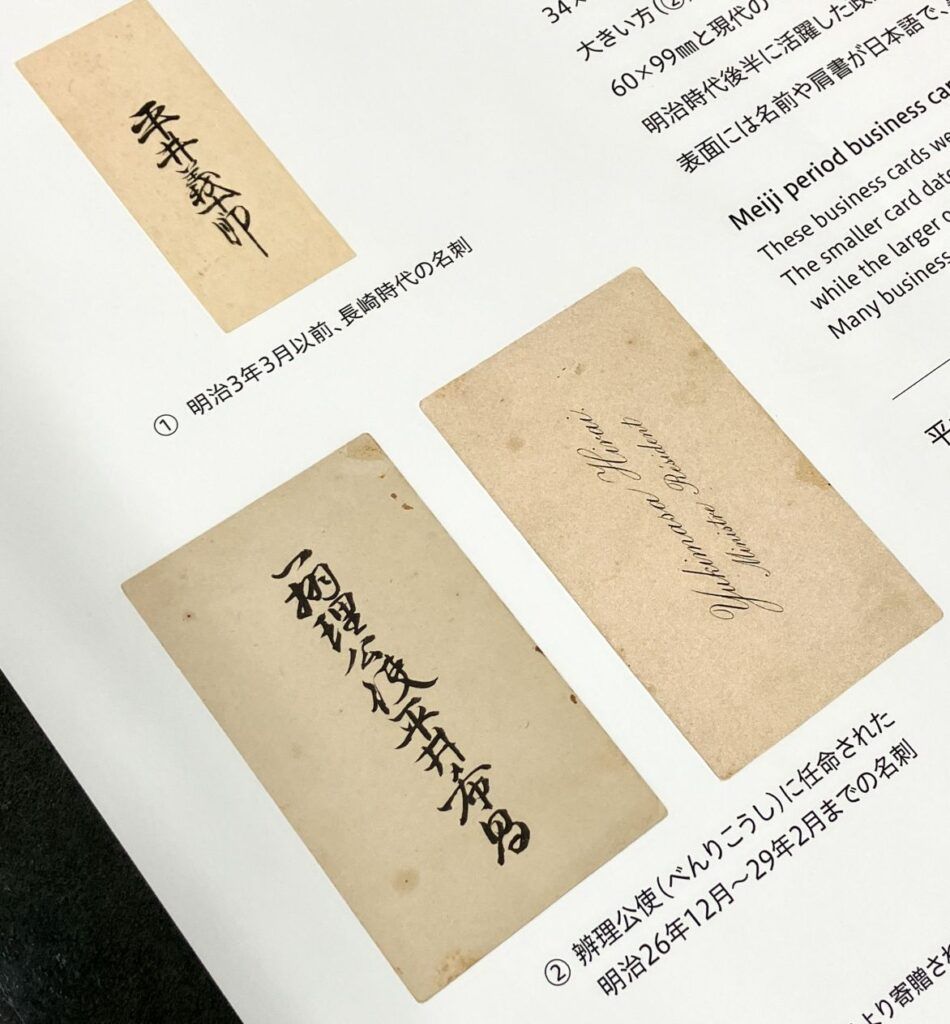 34×
大きい方(②
60×99㎜と現代の
明治時代後半に活躍した政
表面には名前や肩書が日本語で、
Meiji period business car
These business cards we
The smaller card date
while the larger
Many business
平井義十郎
① 明治3年3月以前、長崎時代の名刺
Yukimasa Hirai.
Ministre Résident
理公使平井希昌
② 辨理公使(べんりこうし)に任命された
明治26年12月～29年2月までの名刺
平
より寄贈され